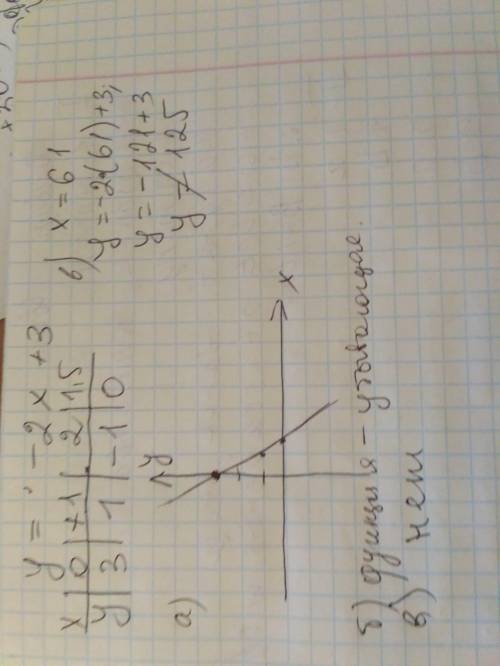 y = -2x + 3
x | 0 | +1 | 2 | 1,5
y | 3 | 1 | -1 | 0
а)
y
x
б) функция – убывающая.
в) нет
в) x = 61
y = -2·(61)+3;
y = -121+3
y ≠ 125